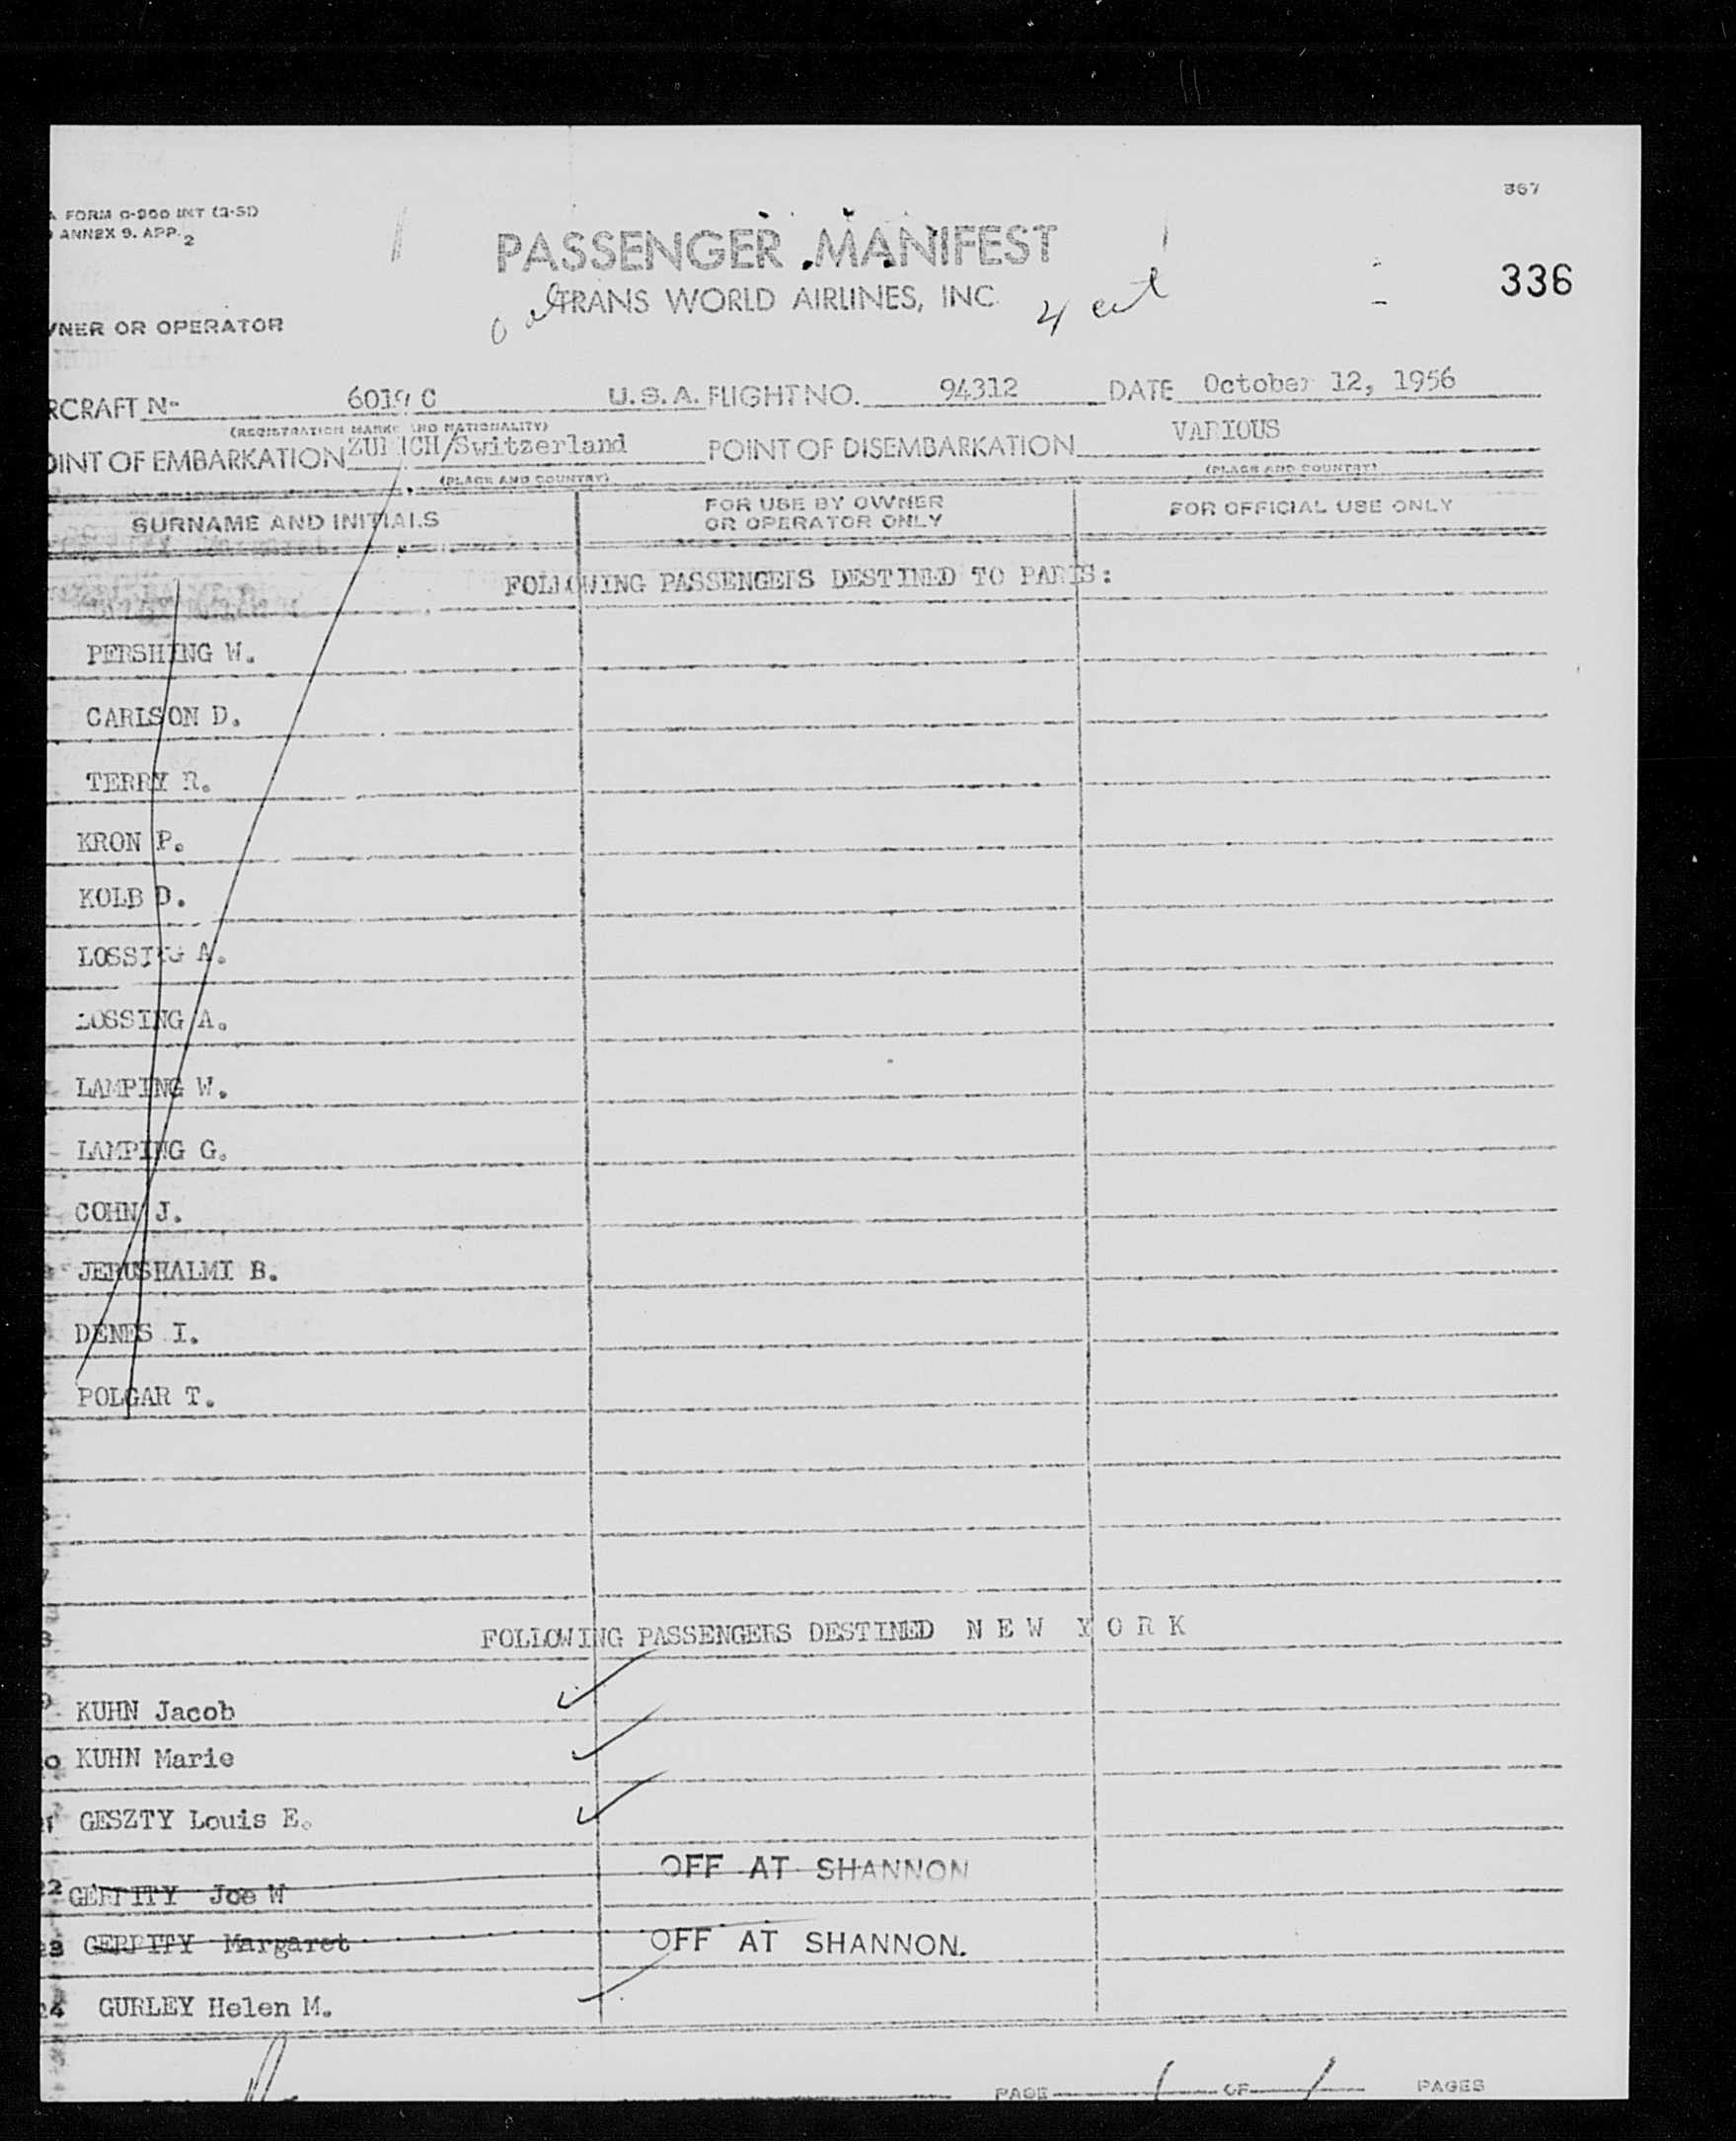 367
FORM O-900 INT (3-51)
ANNEX 9. APP. 2
PASSENGER MANIFEST
336
TRANS WORLD AIRLINES, INC.
4
NER OR OPERATOR
RCRAFT No 6019 C U.S.A. FLIGHT NO. 94312 DATE October 12, 1956
(REGISTRATION MARKS AND NATIONALITY)
OINT OF EMBARKATION ZURICH/Switzerland POINT OF DISEMBARKATION VARIOUS
(PLACE AND COUNTRY) (PLACE AND COUNTRY)
SURNAME AND INITIALS FOR USE BY OWNER OR OPERATOR ONLY FOR OFFICIAL USE ONLY
FOLLOWING PASSENGERS DESTINED TO PARIS:
PERSHING W.
CARLSON D.
TERRY R.
KRON P.
KOLB D.
LOSSING A.
LOSSING A.
LAMPING W.
LAMPING G.
COHN J.
JERUSHALMI B.
DENES I.
POLGAR T.
FOLLOWING PASSENGERS DESTINED N E W Y O R K
KUHN Jacob
KUHN Marie
GESZTY Louis E.
22 GERRITY Joe W OFF AT SHANNON
23 GERRITY Margaret OFF AT SHANNON.
24 GURLEY Helen M.
PAGE 1 OF 1 PAGES